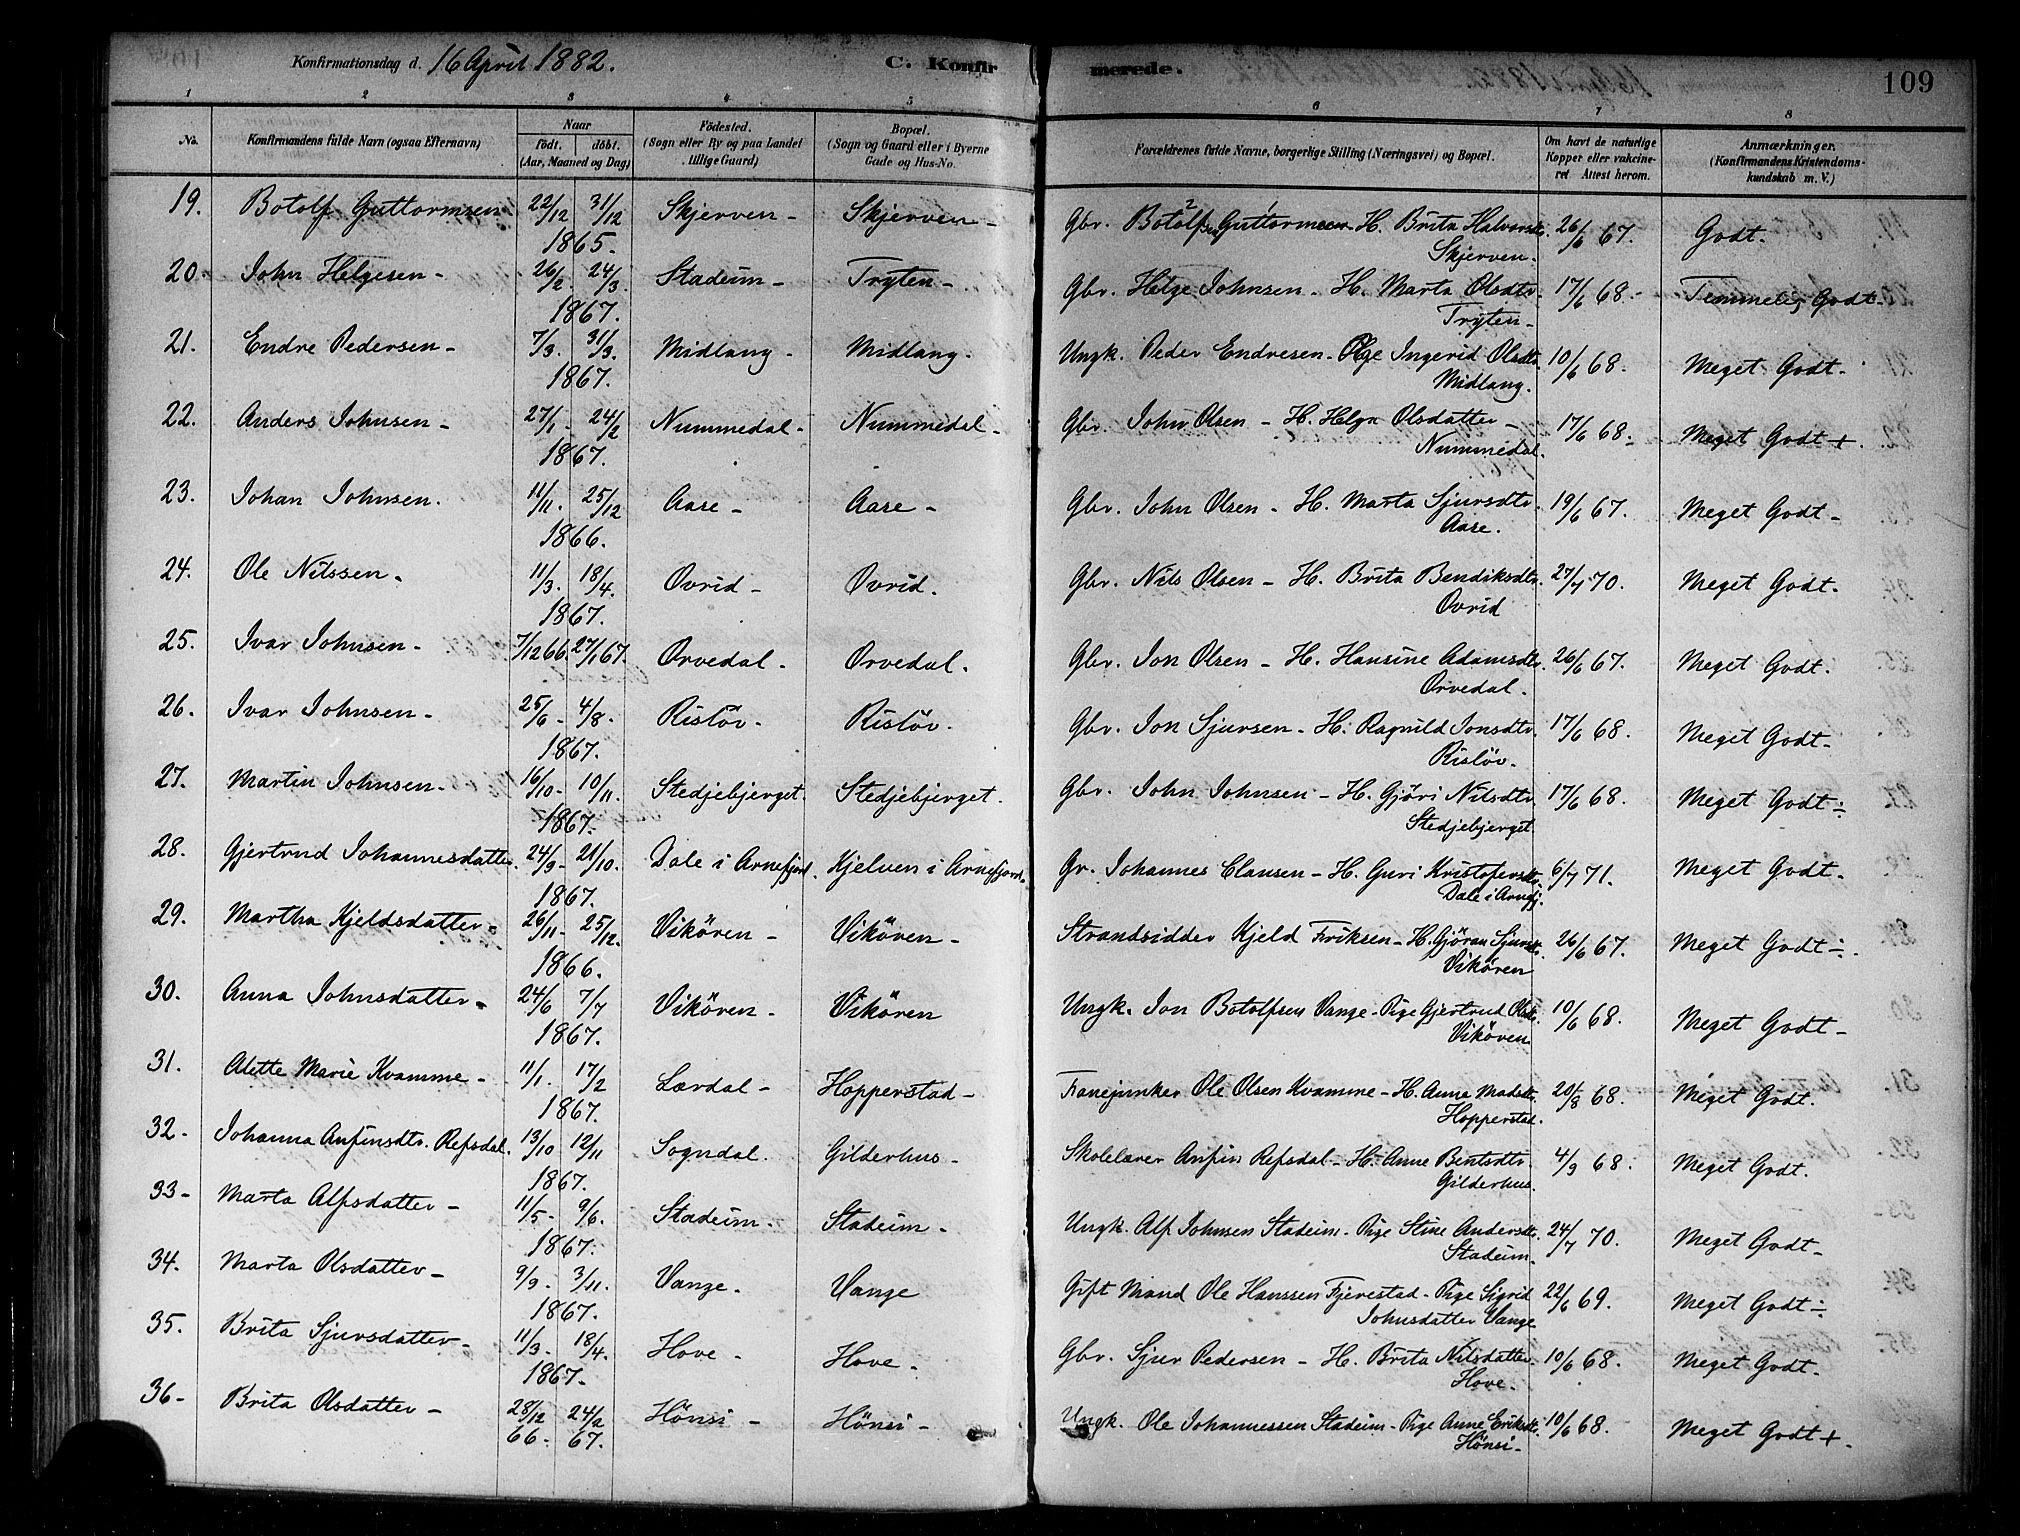 Konfirmationsdag d. 16 April 1882. C. Konfirmerede. 109
1 2 3 4 5 6 7 8
No. Konfirmandens fulde Navn (ogsaa Efternavn) Naar født. døbt. (Aar, Maaned og Dag) Fødested. (Sogn eller By og paa Landet tillige Gaard) Bopæl. (Sogn og Gaard eller i Byerne Gade og Hus-No. Forældrenes fulde Navne, borgerlige Stilling (Næringsvei) og Bopæl. Om havt de naturlige Kopper eller vakcineret Attest herom. Anmærkninger. (Konfirmandens Kristendomskundskab m. V.)
19. Botolf Guttormsen 22/12 31/12 Skjerven - Skjerven - Gbr. Botolf Guttormsen - H. Brita Halvorsdtr. 26/6 67. Godt.
1865. Skjerven.
20. John Helgesen - 26/2. 24/3 Stadeim - Tryten - Gbr. Helge Johnsen - H. Marta Olsdtr. 17/6 68. - Temmelig Godt -
1867. Tryten -
21. Endre Pedersen - 7/3. 31/3. Midlang - Midlang. Ungk. Peder Endresen - Pige Ingerid Olsdtr. 10/6 68. Meget Godt.
1867. Midlang.
22. Anders Johnsen - 27/1 - 24/2 Nummedal - Nummedal - Gbr. John Olsen - H. Helga Olsdatter - 17/6 68 - Meget Godt +.
1867. Nummedal.
23. Johan Johnsen. 11/11. 25/12 Aase - Aase - Gbr. John Olsen - H. Marta Sjursdtr. 19/6 67. Meget Godt -
1866. Aase.
24. Ole Nilssen - 11/3. 18/4. Ovrid - Ovrid. Gbr. Nils Olsen - H. Brita Bendiksdtr. 27/7 70. Meget Godt.
1867. Ovrid
25. Ivar Johnsen - 7/12 66. 27/1 67. Orvedal - Orvedal. Gbr. Jon Olsen - H. Hansine Adamsdtr. 26/6 67. Meget Godt.
Orvedal.
26. Ivar Johnsen - 25/6 - 4/8. Risløv. Risløv. Gbr. Jon Sjursen - H. Ragnild Jonsdtr. 17/6 68. Meget Godt -
1867. Risløv.
27. Martin Johnsen - 16/10 - 10/11. Stedjebjerget. Stedjebjerget. Gbr. John Johnsen - H. Gjöri Nilsdtr. 17/6 68. Meget Godt ÷
1867. Stedjebjerget
28. Gjertrud Johannesdatter. 24/9 - 21/10. Dale i Arnefjord. Kjelven i Arnefjord. Gr. Johannes Clausen - H. Guri Kristofersdtr. 6/7 71. Meget Godt.
1867. Dale i Arnefj.
29. Martha Kjeldsdatter - 26/11 - 25/12. Vikören - Vikören - Strandsidder Kjeld Eriksen - H. Gjöran Sjursdtr. 26/6 67. Meget Godt ÷.
1866. Vikören
30. Anna Johnsdatter - 24/6 7/7 Vikören - Vikören Ungk. Jon Botolfsen Vange - Pige Gjertrud Olsdtr. 10/6 68. Meget Godt -
1867. Vikören
31. Alette Marie Kvamme - 11/1. 17/2 Lærdal - Hopperstad - Fanejunker Ole Olsen Kvamme - H. Anna Madsdtr. 20/8 68. Meget Godt.
1867. Hopperstad.
32. Johanna Anfinsdtr. Refsdal. 13/10 12/11 Sogndal. Gilderhus - Skolelærer Anfin Refsdal - H. Anne Bentsdtr. 4/9 68. Meget Godt.
1867. Gilderhus.
33 - Marta Alfsdatter - 11/5 - 9/6. Stadeim. Stadeim - Ungk. Alf Johnsen Stadeim - Pige Stine Andersdtr. 24/7 70. Meget Godt -
1867. Stadeim.
34. Marta Olsdatter - 9/9. 3/11. Vange. Vange Gift Mand Ole Hanssen Fjerestad - Pige Sigrid 22/6 69. Meget Godt ÷
1867. Johnsdatter Vange
35. Brita Sjursdatter - 11/3 - 18/4. Hove - Hove. Gbr. Sjur Pedersen - H. Brita Nilsdatter. 10/6 68. Meget Godt.
1867. Hove.
36 - Brita Olsdatter - 28/12 24/2 Hönsi - Hönsi - Ungk. Ole Johannessen Stadeim - Pige Anne Eriksdtr. 10/6 68. Meget Godt +.
66. 67. Hönsi -